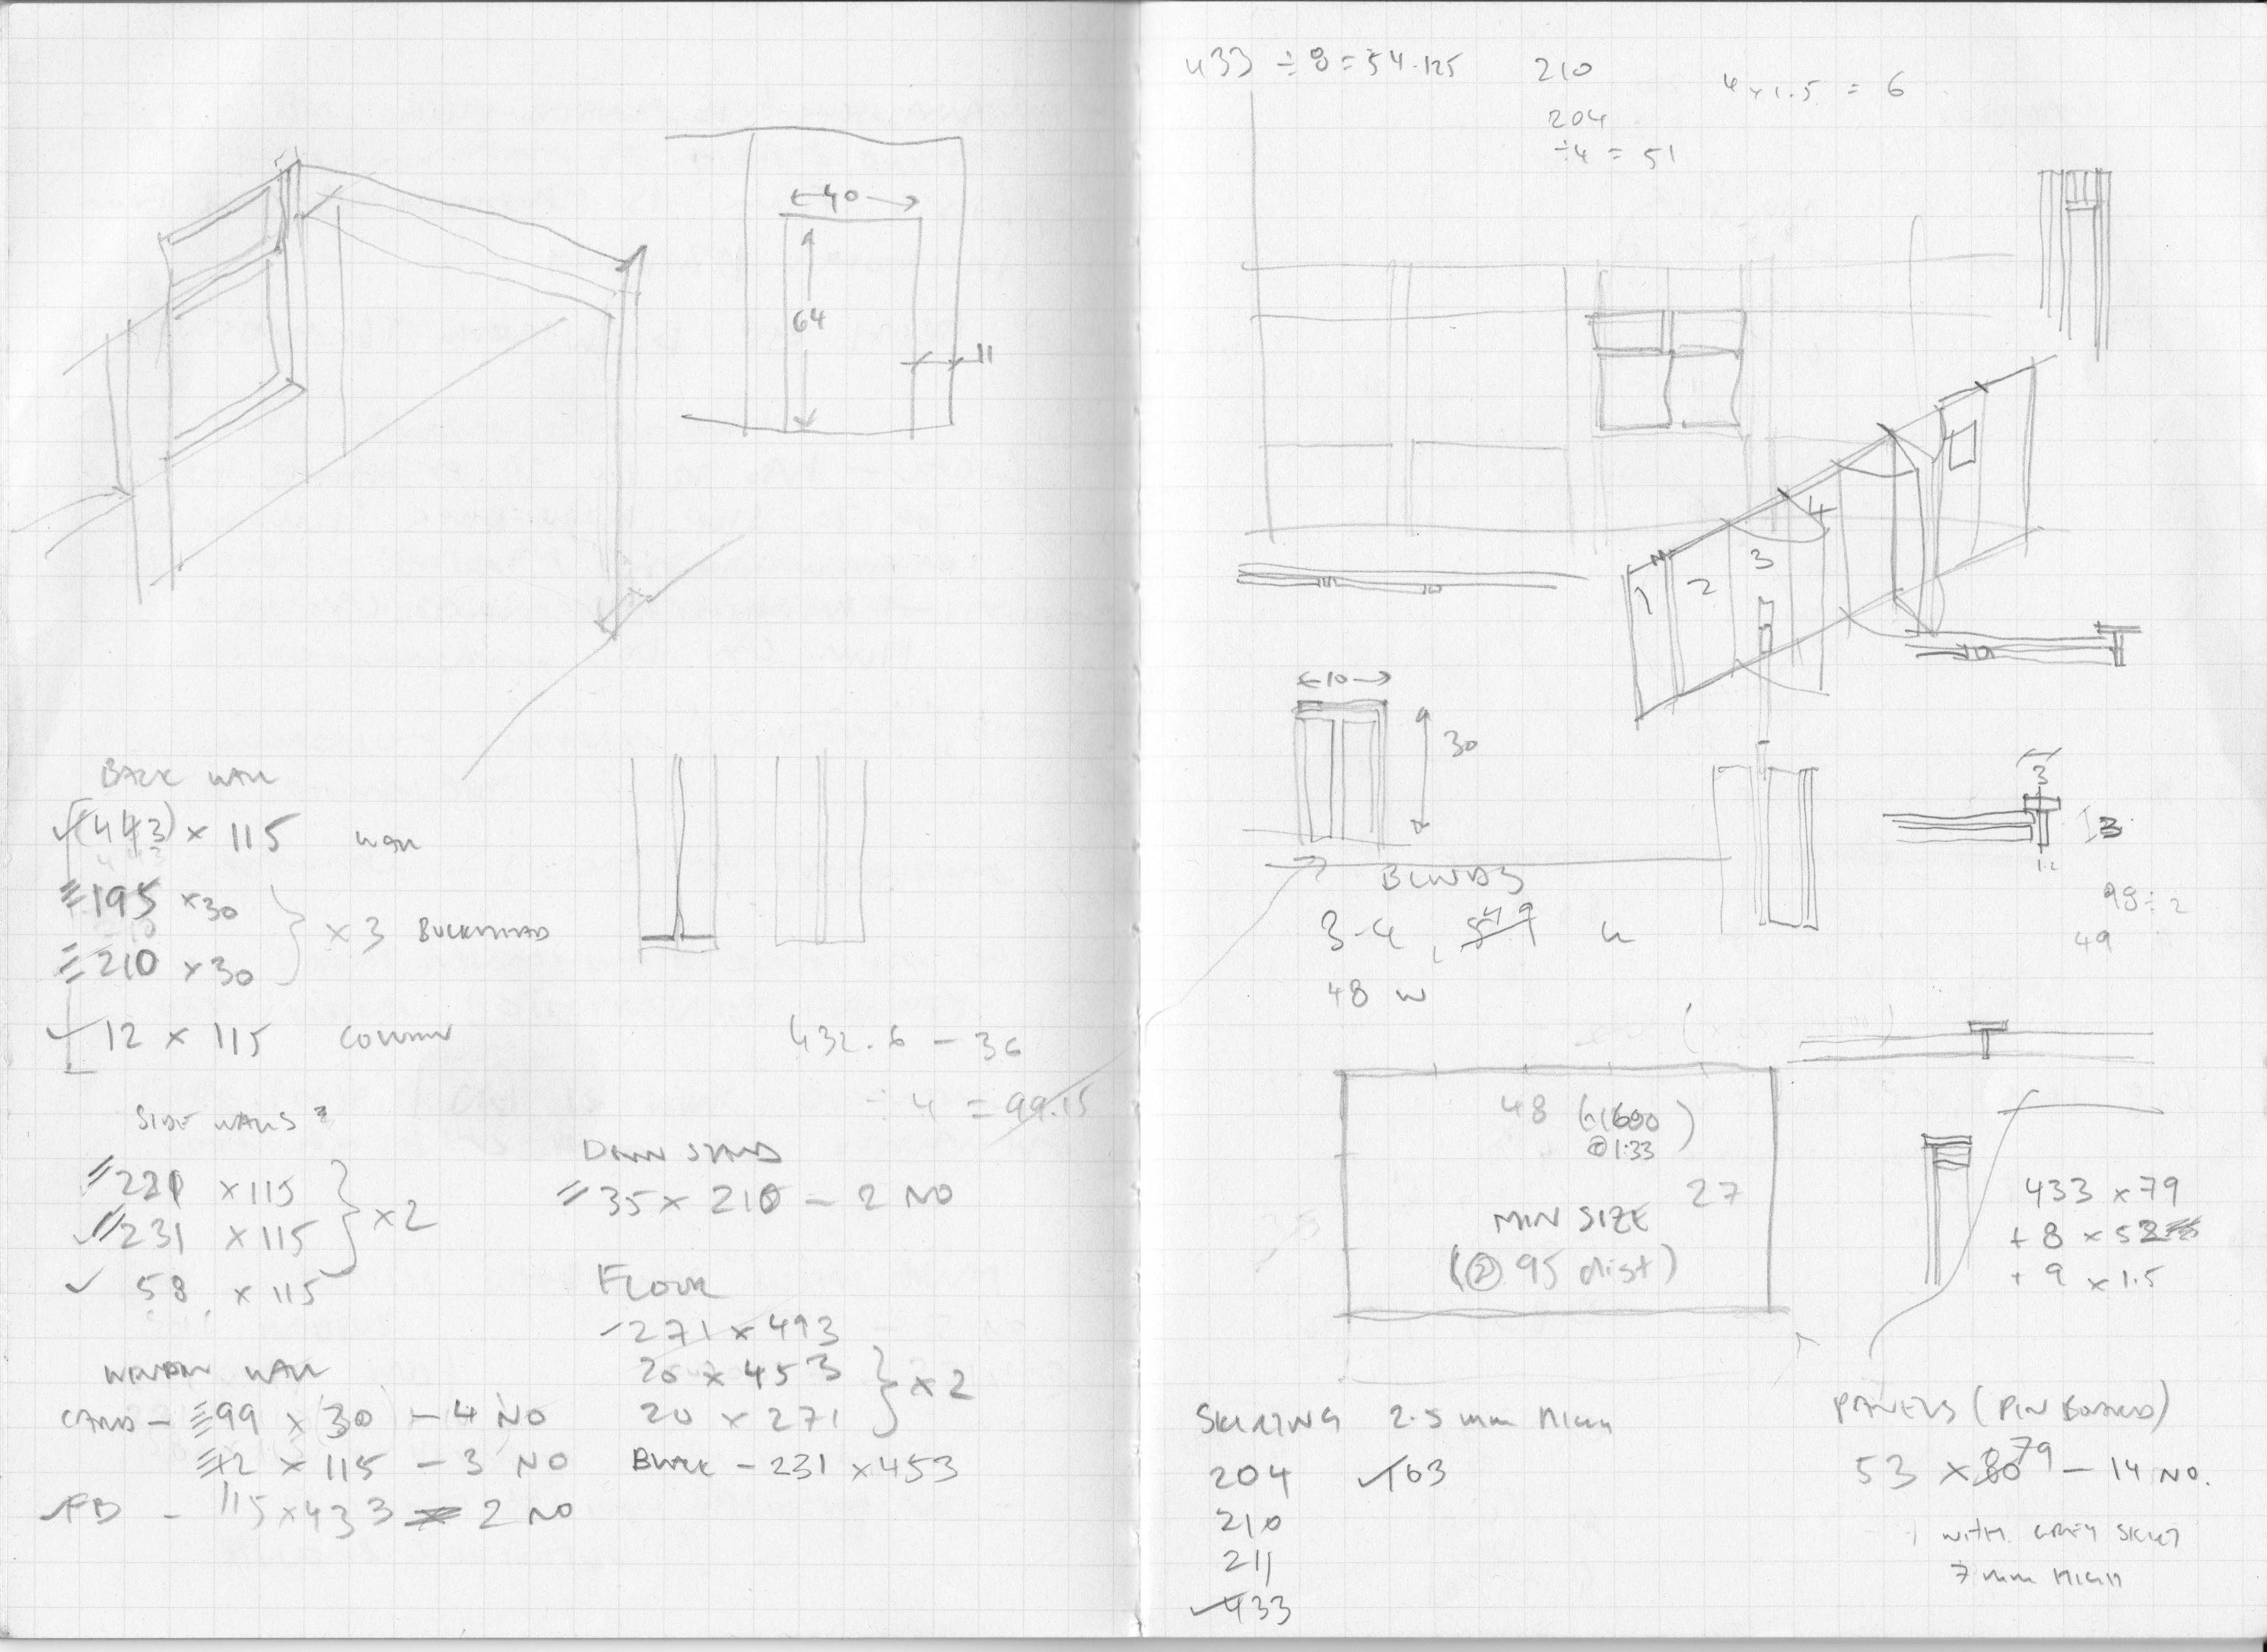 40
64
11
BACK WALL
(443) x 115 WALL
195 x 30
210 x 30
} x 3 BULKHEAD
12 x 115 COLUMN
432.6 - 36
÷ 4 = 99.15
SIDE WALLS
221 x 115
231 x 115
} x 2
58 x 115
DOWN STAND
35 x 210 - 2 NO
FLOOR
271 x 493
20 x 453
20 x 271
} x 2
BLACK - 231 x 453
WINDOW WALL
CARD - 99 x 30 - 4 NO
12 x 115 - 3 NO
FB - 115 x 433 2 NO
433 ÷ 8 = 54.125
210
204
÷4 = 51
4 x 1.5 = 6
1
2
3
4
10
30
BLINDS
3-4,
48 W
3
3
1.2
98 ÷ 2
49
48 (1600
@1:33)
27
MIN SIZE
(@ 95 dist)
433 x 79
+ 8 x 52
+ 9 x 1.5
SKIRTING 2.5 mm HIGH
204 163
210
211
433
PANELS (PIN BOARD)
53 x 79 - 14 NO.
WITH GREY SKIRT
7 mm HIGH